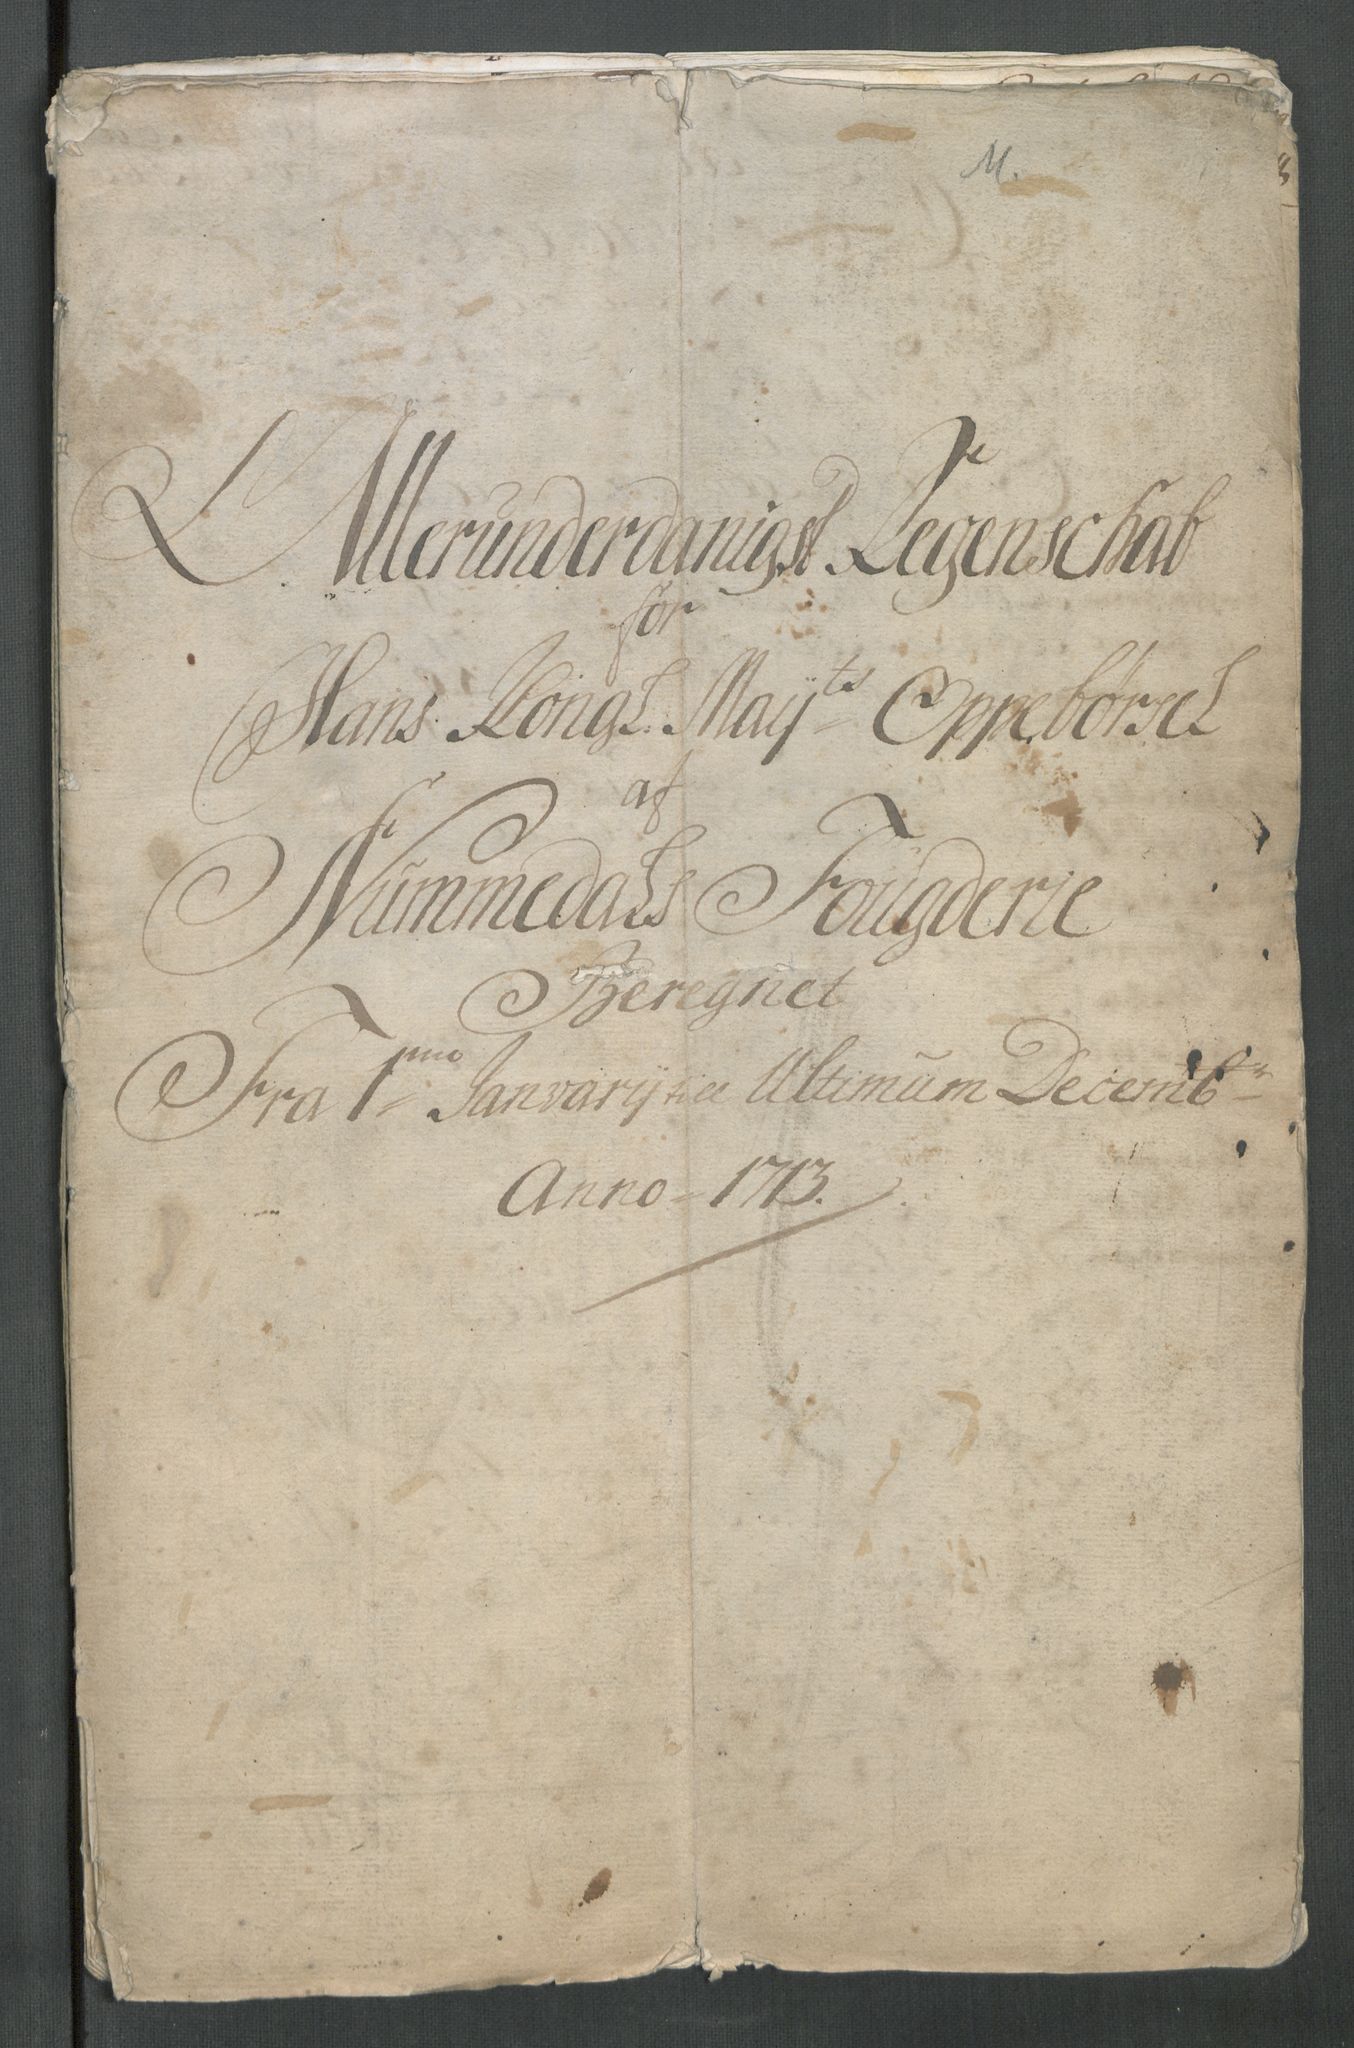 M.
Alleründerdanigst Regenschab
for
Hans Kongl. Mayᵗˢ Oppebørsel
af
Nümmedals Foügderie
Beregnet
Fra 1ᵐᵒ Janvarij til Ultimüm Decembʳ
Anno 1713.